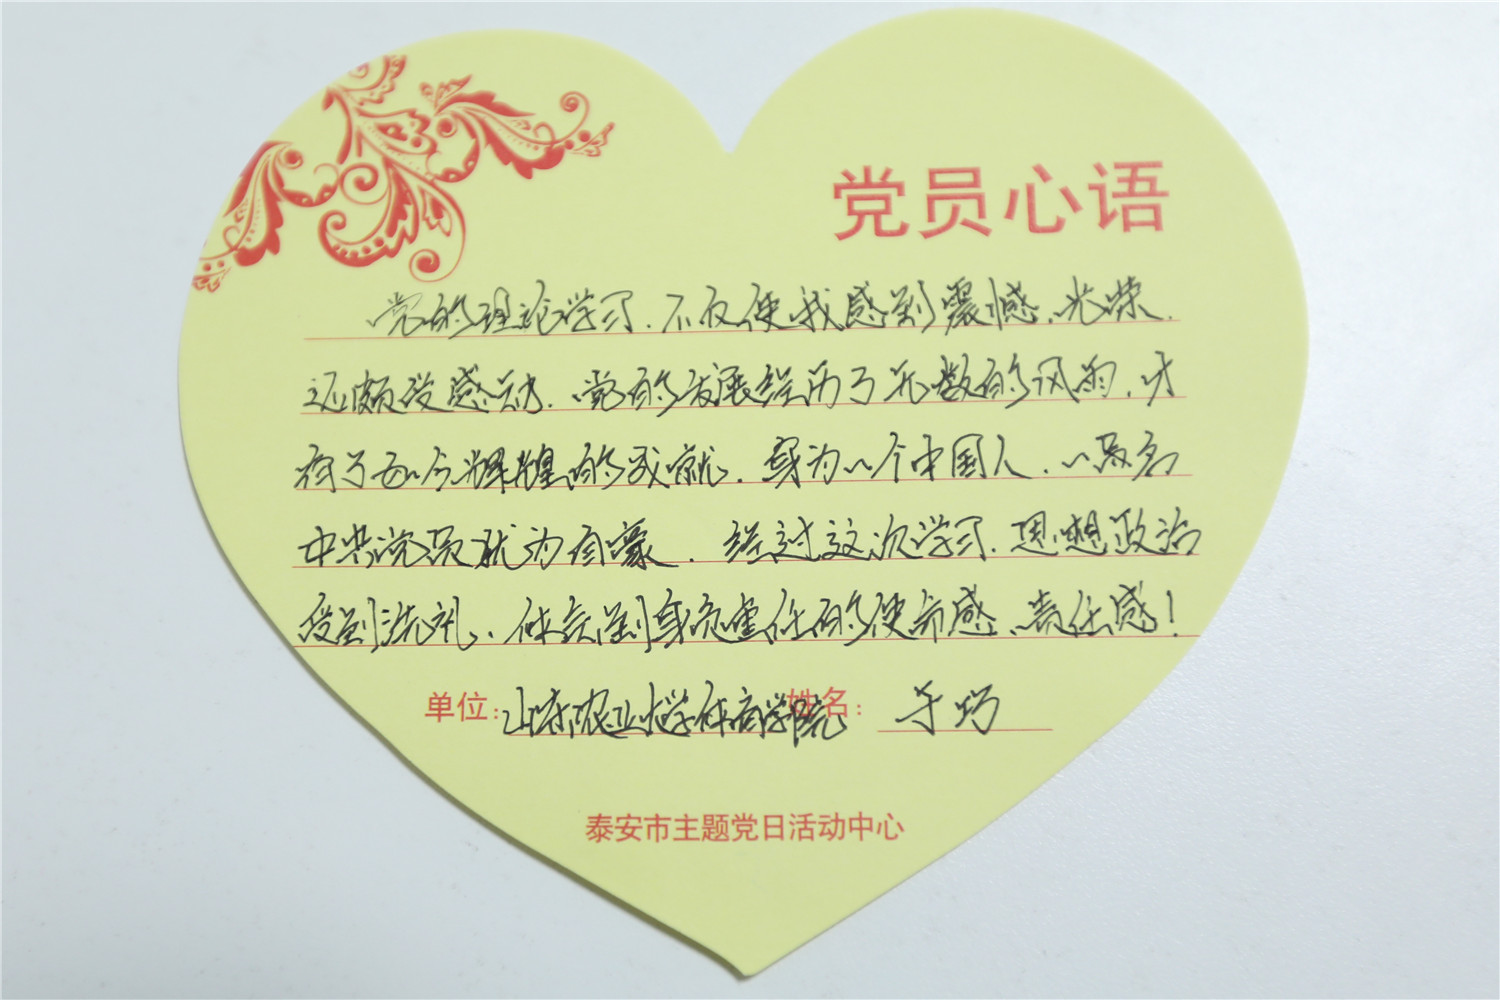 党员心语
党的理论学习，不仅使我感到震撼，光荣，
还颇受感动，党的发展经历了无数的风雨，才
有了如今辉煌的成就，身为一个中国人，一员名
中共党员犹为自豪，经过这次学习，思想政治
受到洗礼，体会到身负重任的使命感、责任感！
单位：山东农业大学体商学院 姓名：于巧
泰安市主题党日活动中心